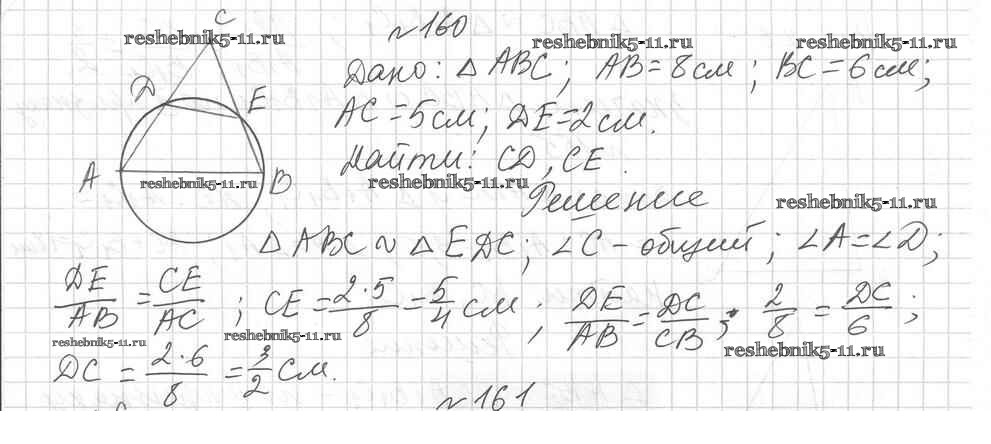 C
№160
reshebnik5-11.ru reshebnik5-11.ru reshebnik5-11.ru
Дано: △ ABC; AB = 8 см; BC = 6 см;
D E
AC = 5 см; DE = 2 см.
Найти: CD, CE.
A B
reshebnik5-11.ru reshebnik5-11.ru
Решение reshebnik5-11.ru
△ ABC ~ △ EDC; ∠C - общий; ∠A = ∠D;
DE/AB = CE/AC; CE = 2·5/8 = 5/4 см; DE/AB = DC/CB; 2/8 = DC/6;
reshebnik5-11.ru reshebnik5-11.ru reshebnik5-11.ru
DC = 2·6/8 = 3/2 см.
№161